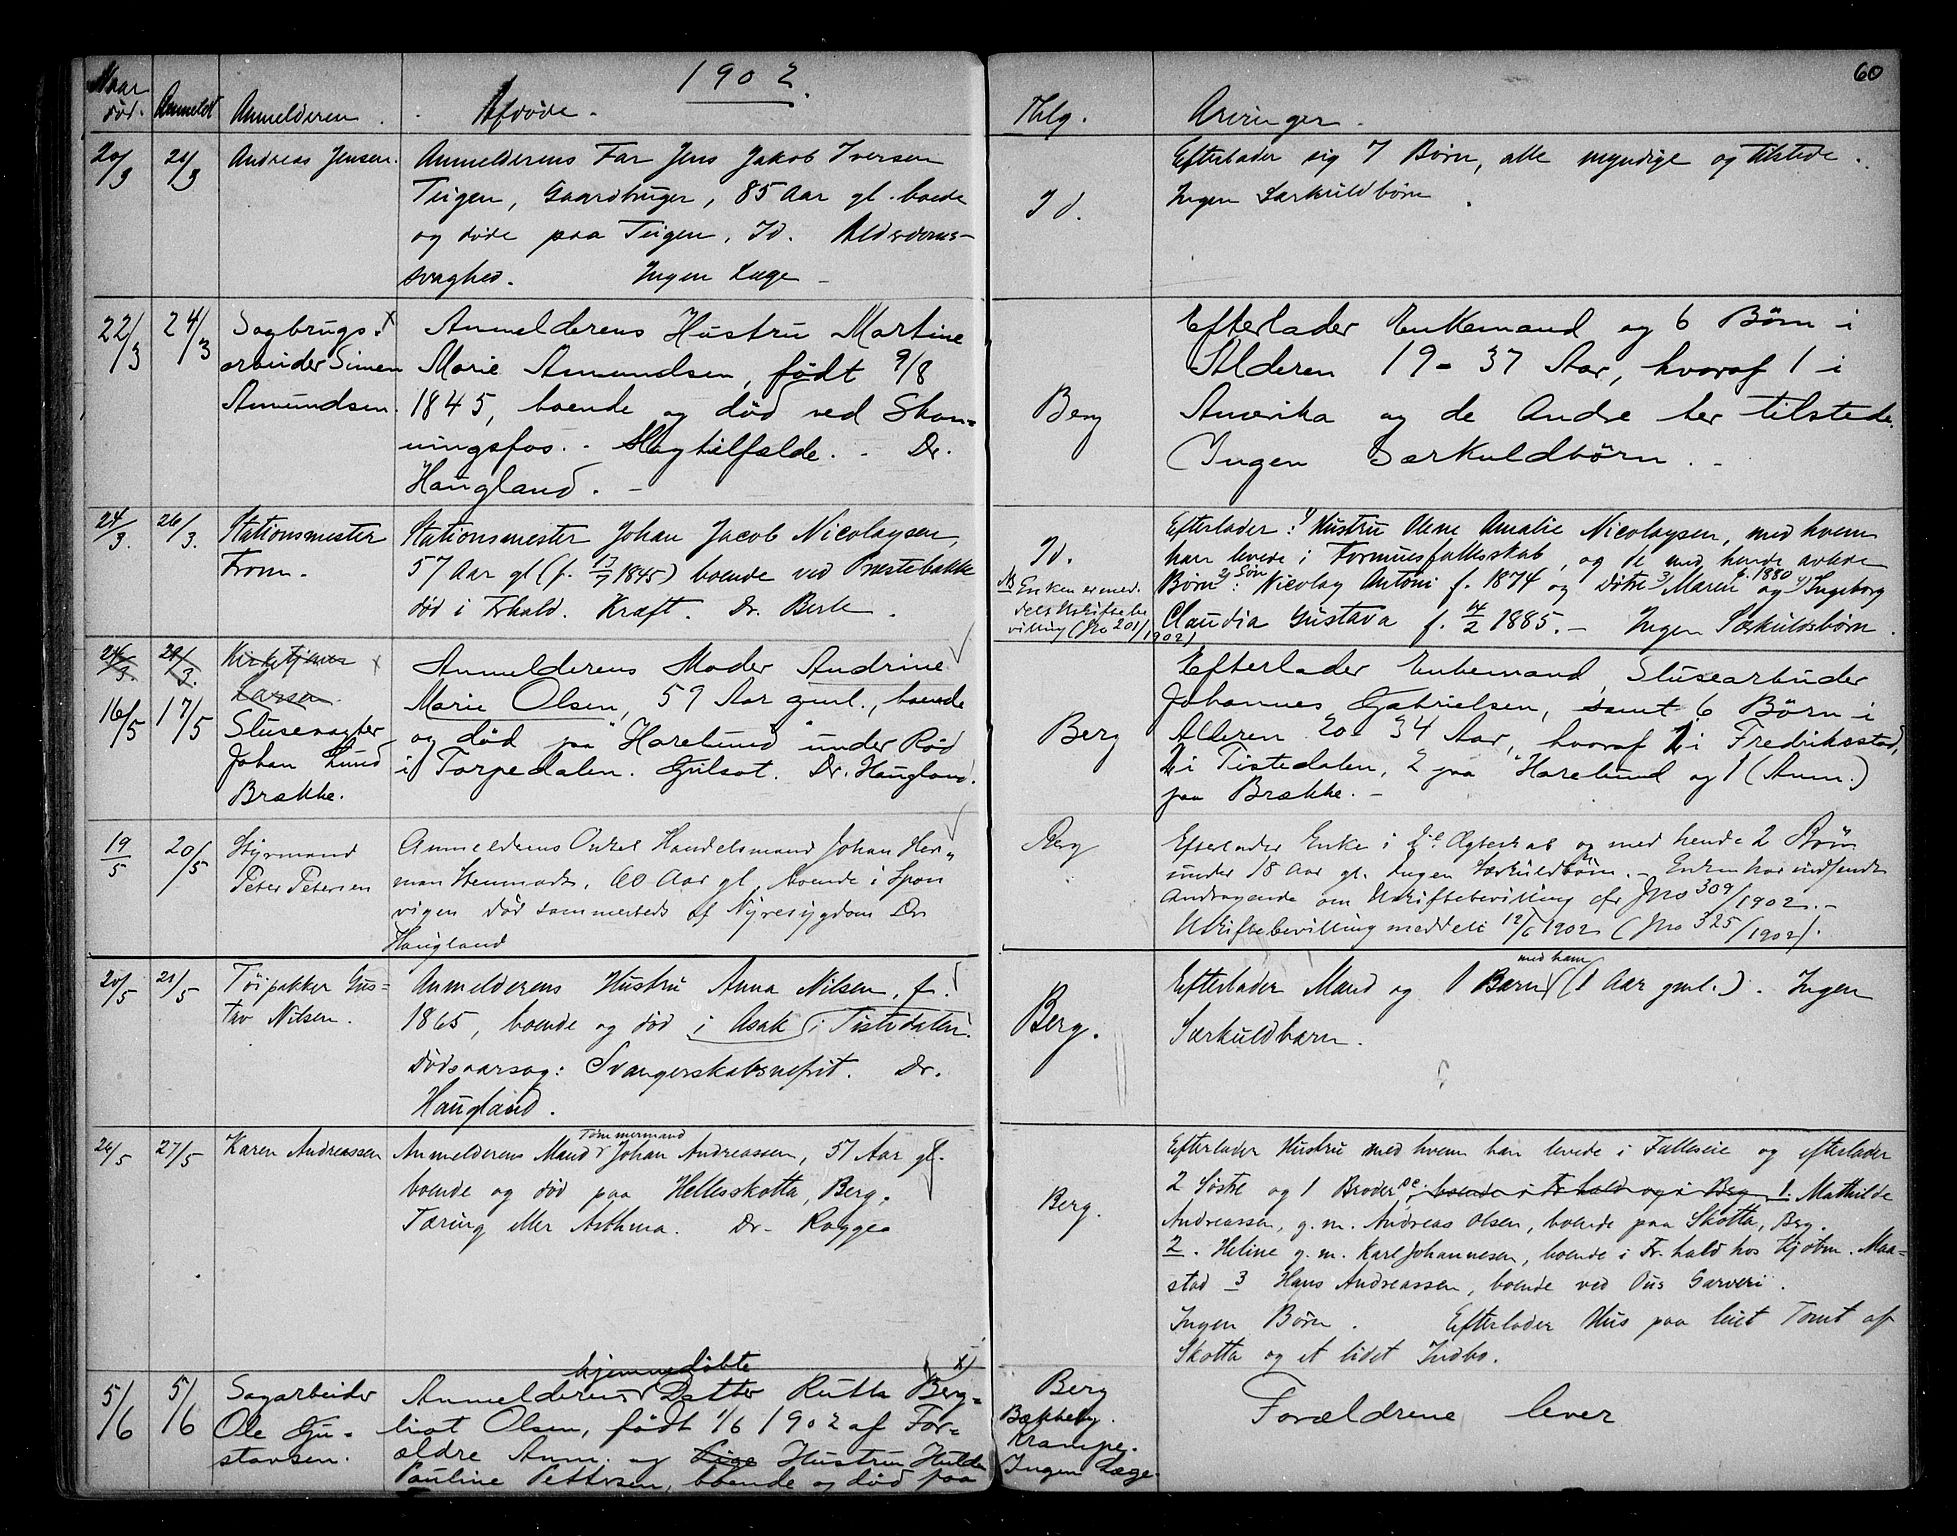 1902.
60
Naar død. Anmeldt Anmelderen. Afdøde. Thlg. Arvinger.
20/3 21/3 Andreas Jensen.
Anmelderens Far Jens Jakob Iversen
Teigen, Gaardbruger, 85 Aar gl. boede
og døde paa Teigen, Id. Alderdoms-
svaghed. Ingen Læge -
Id.
Efterlader sig 7 Børn, alle myndige og tilstede.
Ingen Særkuldbørn.
22/3 24/3 Sagbrugs-
arbeider Simen
Amundsen.
Anmelderens Hustru Martine
Marie Amundsen, født 9/8
1845, boende og død ved Skon-
ningsfos. - Slagtilfælde. - Dr.
Haugland. -
Berg
Efterlader Enkemand og 6 Børn i
Alderen 19 - 37 Aar, hvoraf 1 i
Amerika og de Andre her tilstede.
Ingen Særkuldbørn. -
24/3. 26/3. Stationsmester
From.
Stationsmester Johan Jacob Nicolaysen,
57 Aar gl (f. 13/7 1845) boende ved Præstebakke
død i Frhald. Kræft. Dr. Berle.
Id.
NB Enken er med-
delt Uskiftebe
villing (Jno 201/1902)
Efterlader: 1) Hustru Olene Amalie Nicolaysen, med hvem
han levede i Formuesfællesskab, og de med hende avlede
Børn: 2) Søn Nicolay Antoni f. 1874 og Døtre 3) Maren f. 1880 og 4) Ingeborg
Claudia Gustava f. 14/2 1885. - Ingen Særkuldsbørn.
24/3. 24/3. Kirketjener
Larsen.
16/5 17/5 Slusevagter
Johan Lund
Brække.
Anmelderens Moder Andrine
Marie Olsen, 59 Aar gml., boende
og død paa "Harelund" under Rød
i Torpedalen. Gulsot. Dr. Haugland.
Berg
Efterlader Enkemand, Slusearbeider
Johannes Gabrielsen, samt 6 Børn i
Alderen 20 - 34 Aar, hvoraf 1 i Fredriksstad,
2 i Tistedalen, 2 paa "Harelund og 1 (Anm.)
paa Brække. -
19/5 20/5 Styrmand
Peter Petersen
Anmelderens Onkel Handelsmand Johan Her-
man, 60 Aar gl boende i Spon
vigen død sammesteds af Nyresygdom Dr
Haugland
Berg
Efterlader Enke i Ægteskab og med hende 2 Børn
under 18 Aar gl. Ingen Særkuldbørn. - Enken har indsendt
Andragende om Uskiftebevilling cfr Jno 309/1902. -
Uskiftebevilling meddelt 12/6 1902 (Jno 325/1902).
20/5 21/5 Tøipakker Gus-
tav Nilsen.
Anmelderens Hustru Anna Nilsen, f.
1865, boende og død i Asak i Tistedalen.
Dødsaarsag: Svangerskabsnefrit. Dr.
Haugland.
Berg.
Efterlader Mand og 1 Barn med ham (1 Aar gml.). Ingen
Særkuldbarn.
26/5 27/5 Karen Andreassen
Anmelderens Mand Tømmermand Johan Andreassen, 51 Aar gl.
boende og død paa Hellesskotta, Berg,
Tæring eller Asthma. Dr. Rogge
Berg.
Efterlader Hustru med hvem han levede i Fælleseie og efterlader
2 Søstre og 1 Broder, boende i Fr.hald og i Berg 1. Mathilde
Andreassen, g. m. Andreas Olsen, boende paa Skotta, Berg.
2. Heline g. m. Karl Johannesen, boende i Fr.hald hos Kjøbm. Maa-
stad 3 Hans Andreassen, boende ved Ous Garveri.
Ingen Børn. Efterlader Hus paa leiet Tomt af
Skotta og et lidet Indbo.
5/6 5/6 Sagarbeider
Ole Gu-
stavsen.
Anmelderens hjemmedøbte Datter Ruth Berg-
liot Olsen, født 1/6 1902 af For-
ældre Anm. og Hustru Hulda
Pauline Pettersen, boende og død paa
Berg
Bækkeby.
Krampe.
Ingen Læge.
Forældrene lever